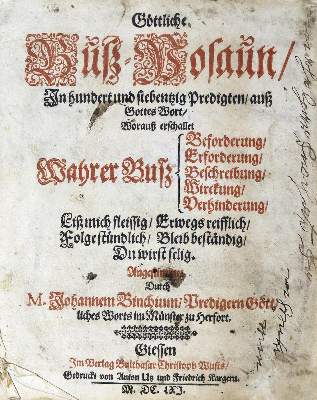 Göttliche
Buß-Posaun/
In hundert und siebentzig Predigten/ auß
Gottes Wort/
Worauß erschallet
Wahrer Buß
Beforderung/
Erforderung/
Beschreibung/
Wirckung/
Verhinderung/
Liß mich fleissig/ Erwegs reifflich/
Folge stündlich/ Bleib beständig/
Du wirst selig.
Durch
M. Johannem Binchium/ Predigern Gött-
liches Worts im Münster zu Herfort.
Giessen
Im Verlag Balthasar Christoph Wusts/
Gedruckt von Anton Utz und Friedrich Kargern.
M. DC. LXI.